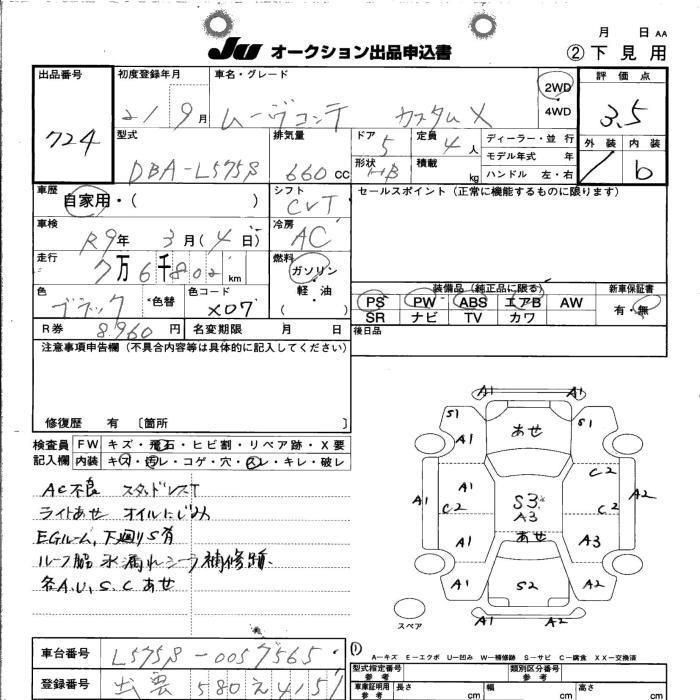 月 日 AA
JU オークション出品申込書 ② 下見用
出品番号 初度登録年月 車名・グレード 評価点
724 21 9月 ムーヴコンテ カスタムX 2WD 4WD 3.5
型式 排気量 ドア 定員 ディーラー・並行 外装 内装
DBA-L575S 660cc 5 4人 モデル年式 年 b
形状 HB 積載 kg ハンドル 左・右
車歴 シフト セールスポイント (正常に機能するものに限ります)
自家用・( ) CVT
車検 冷房
R9年 3月 (4日) AC
走行 燃料
7万6千802km ガソリン
軽・油
( )
装備品 (純正品に限る) 新車保証書
色 色替 色コード PS PW ABS エアB AW 有・無
ブラック X07 SR ナビ TV カワ
R券 8,960円 名変期限 月 日 後日品
注意事項申告欄 (不具合内容等は具体的に記入してください)
修復歴 有 〔箇所 〕
検査員 FW キズ・飛石・ヒビ割・リペア跡・X要
記入欄 内装 キズ・汚レ・コゲ・穴・スレ・キレ・破レ
AC不良 スタッドレスT
ライトあせ オイルにじみ
EGルーム、下廻りS有
ルーフ脇 水漏れシーラ補修跡.
各A.U.S.Cあせ
A1 A1
S1 あせ S1
A1
C2
A1 C2 S3 A3 C2 A2
A1 あせ A3
A1 S2 A2
A1 A2
スペア
車台番号 L575S-0057565
登録番号 出雲 580 え 4157
(1)
A-キズ E-エクボ U-凹み W-補修跡 S-サビ C-腐食 XX-交換済
型式指定番号 参考 類別区分番号 参考
車庫証明用 参考 長さ cm 幅 cm 高さ cm